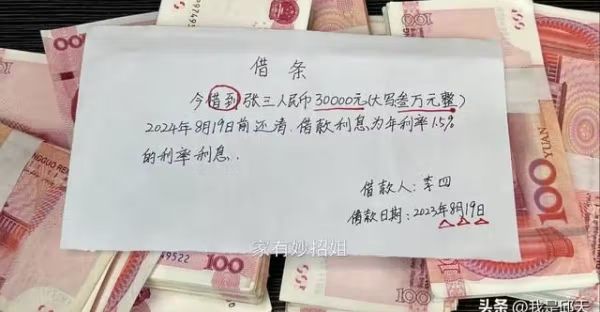 借条
今借到张三人民币30000元(大写叁万元整)
2024年8月19日前还清.借款利息为年利率1.5%
的利率利息.
借款人:李四
借款日期:2023年8月19日
家有妙招姐
头条@我是邱天
100
YUAN
100
100
100